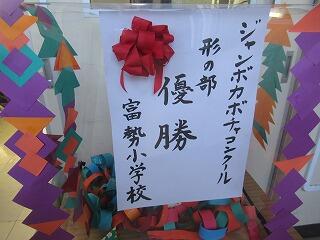 ジャンボカボチャコンクール
形の部
優勝
富勢小学校